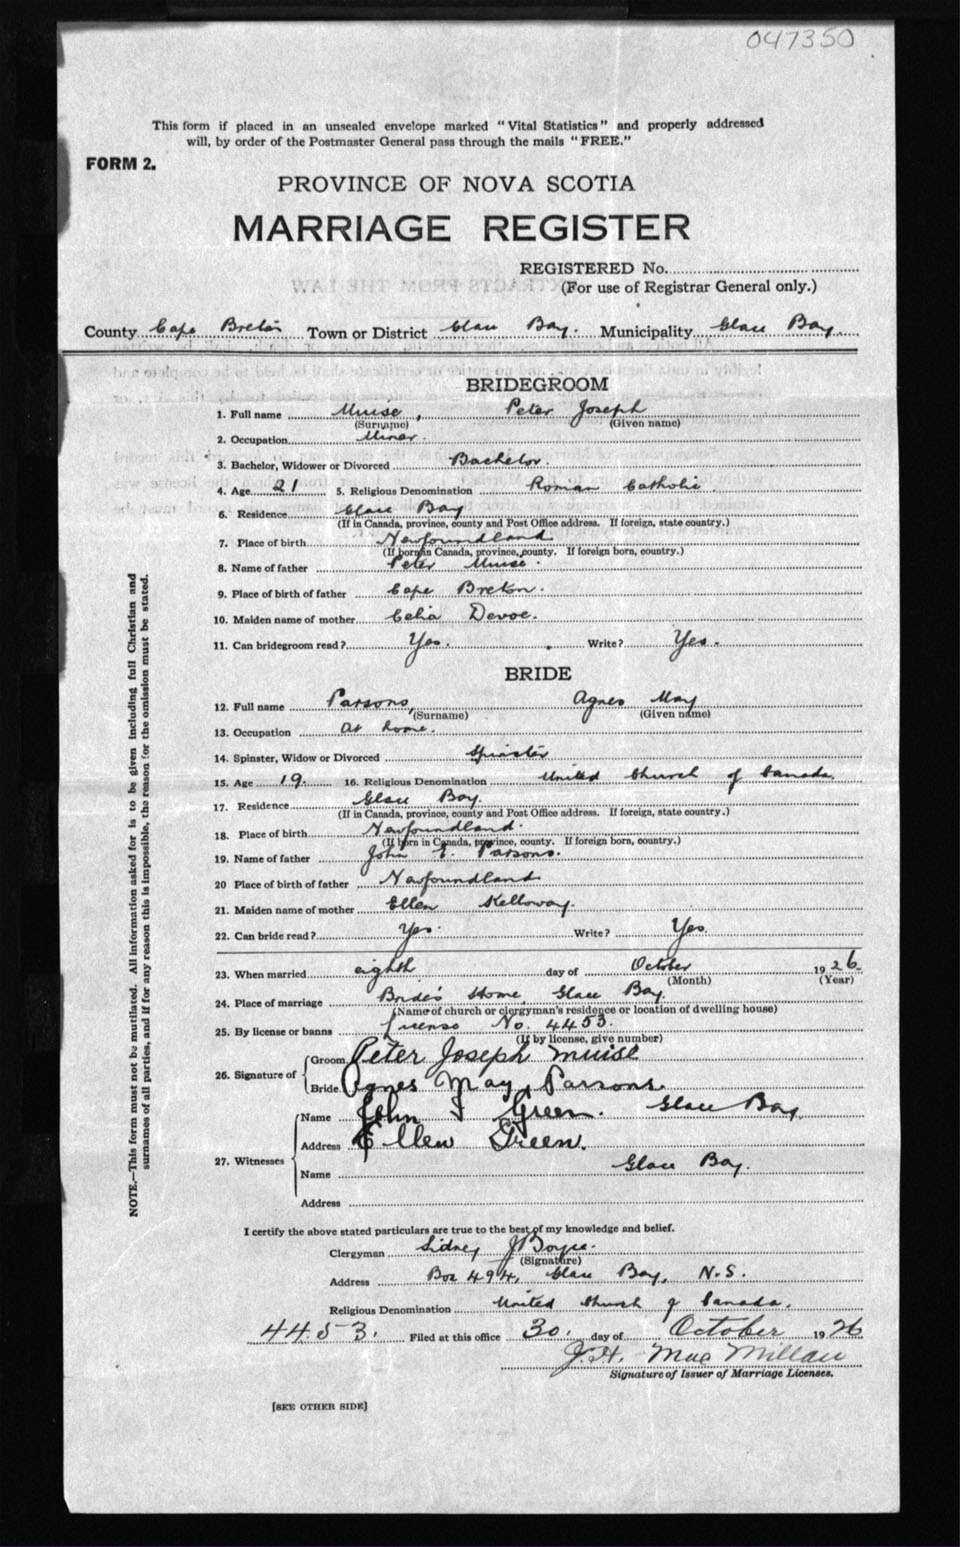 047350
This form if placed in an unsealed envelope marked "Vital Statistics" and properly addressed
will, by order of the Postmaster General pass through the mails "FREE."
FORM 2.
PROVINCE OF NOVA SCOTIA
MARRIAGE REGISTER
REGISTERED No.
(For use of Registrar General only.)
County Cape Breton Town or District Glace Bay. Municipality Glace Bay
BRIDEGROOM
1. Full name Muise, Peter Joseph
(Surname) (Given name)
2. Occupation Miner.
3. Bachelor, Widower or Divorced Bachelor.
4. Age 21 5. Religious Denomination Roman Catholic
6. Residence Glace Bay
(If in Canada, province, county and Post Office address. If foreign, state country.)
7. Place of birth Newfoundland
(If born in Canada, province, county. If foreign born, country.)
8. Name of father Peter Muise.
9. Place of birth of father Cape Breton.
10. Maiden name of mother Celia Devoe.
11. Can bridegroom read? Yes. Write? Yes.
BRIDE
12. Full name Parsons, Agnes May
(Surname) (Given name)
13. Occupation At home.
14. Spinster, Widow or Divorced Spinster
15. Age 19. 16. Religious Denomination United Church of Canada.
17. Residence Glace Bay.
(If in Canada, province, county and Post Office address. If foreign, state country.)
18. Place of birth Newfoundland.
(If born in Canada, province, county. If foreign born, country.)
19. Name of father John E. Parsons.
20 Place of birth of father Newfoundland
21. Maiden name of mother Ellen Kelloway.
22. Can bride read? Yes. Write? Yes.
23. When married eighth day of October 1926.
(Month) (Year)
24. Place of marriage Bride's Home Glace Bay
(Name of church or clergyman's residence or location of dwelling house)
25. By license or banns License No. 4453.
(If by license, give number)
26. Signature of Groom Peter Joseph Muise
Bride Agnes May Parsons
27. Witnesses
Name John Green. Glace Bay
Address Ellen Green.
Name Glace Bay.
Address
I certify the above stated particulars are true to the best of my knowledge and belief.
Clergyman Sidney J Boyce.
(Signature)
Address Box 494, Glace Bay, N.S.
Religious Denomination United Church of Canada.
4453. Filed at this office 30. day of October 1926
J.H. MacMillan
Signature of Issuer of Marriage Licenses.
[SEE OTHER SIDE]
NOTE.—This form must not be mutilated. All information asked for is to be given including full Christian and
surnames of all parties, and if for any reason this is impossible, the reason for the omission must be stated.